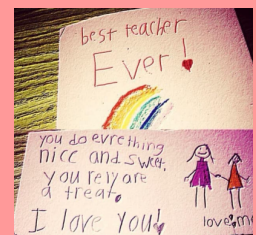 best teacher
Ever!
you do evrething
nice and sweet.
you rely are
a treat.
I love You!
love